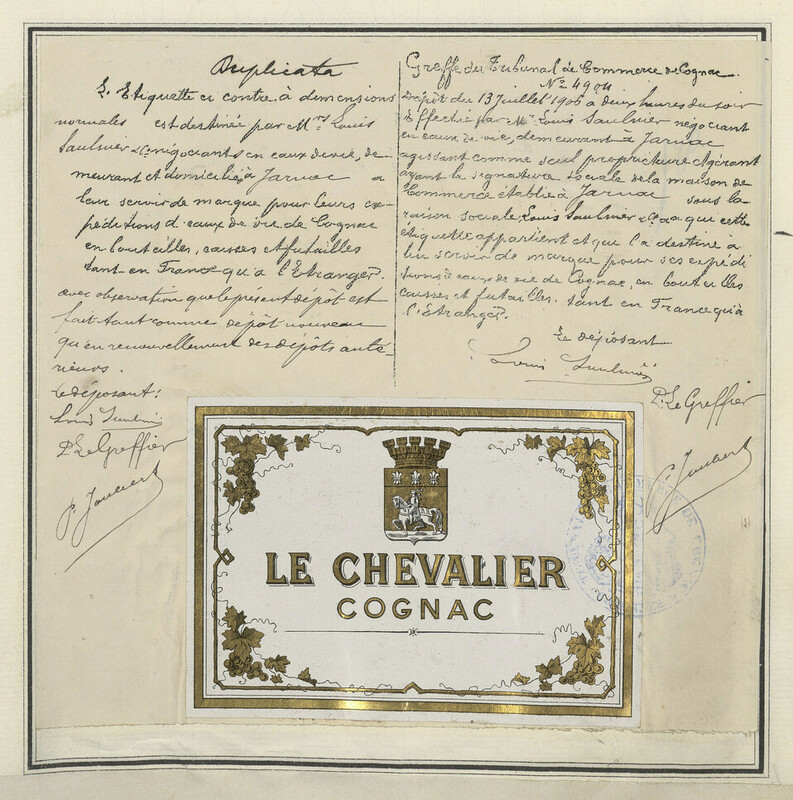 Duplicata
L'Etiquette ci contre à dimensions
normales est destinée par Mrs Louis
Saulnier & Co négociants en eaux de vie, de-
meurant et domiciliés à Jarnac a
leur servir de marque pour leurs ex-
péditions d'eaux de vie de Cognac
en bouteilles, caisses et futailles
tant en France qu'à l'Etranger.
avec observation que le présent dépôt est
fait tant comme dépôt nouveau
qu'en renouvellement des dépôts anté-
rieurs.
Le déposant:
Louis Saulnier
P. Le Greffier
P. Joubert
Greffe du Tribunal de Commerce de Cognac.
No 4904
Dépôt du 13 Juillet 1906 à deux heures du soir
Effectué par Mr Louis Saulnier négociant
en eaux de vie, demeurant à Jarnac
agissant comme seul propriétaire & gérant
ayant la signature sociale de la maison de
Commerce établie à Jarnac sous la
raison sociale, Louis Saulnier & Co à qui cette
étiquette appartient et qui l'a destiné à
lui servir de marque pour ses expédi
tions d'eaux de vie de Cognac, en bouteilles
caisses et futailles. tant en France qu'à
l'Etranger.
Le déposant
Louis Saulnier
P. Le Greffier
P. Joubert
LE CHEVALIER
COGNAC